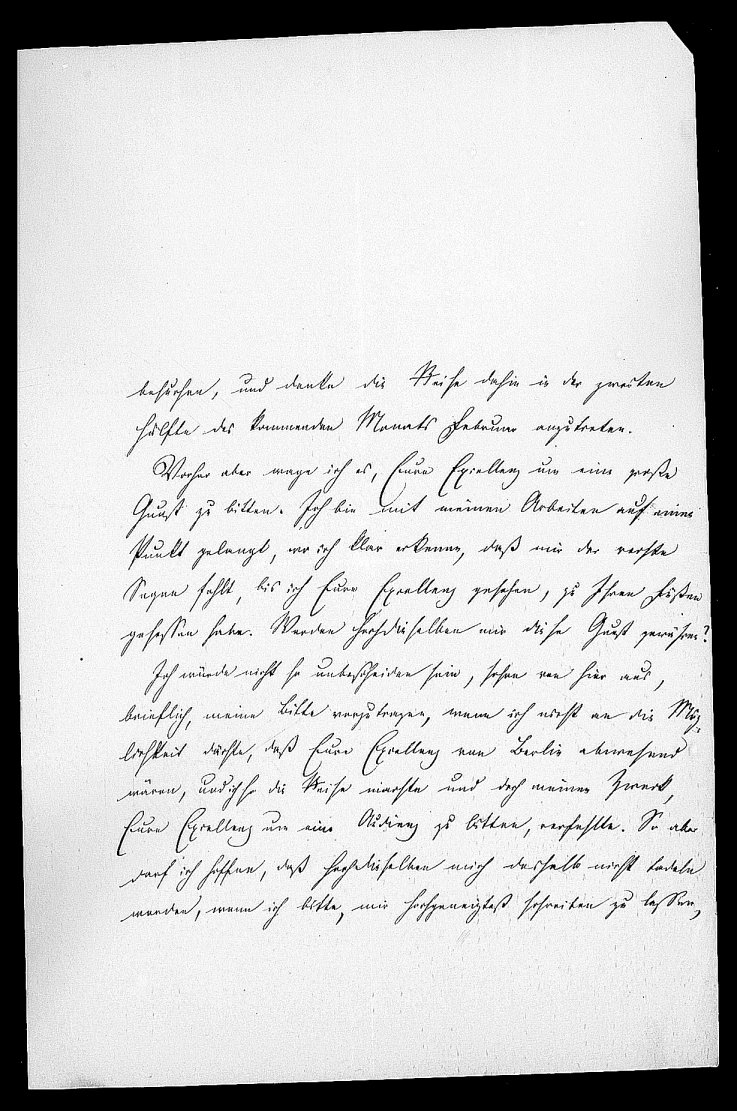 besuchen, und denke die Reise dahin in der zweiten
Hälfte des kommenden Monats Februar anzutreten.
Vorher aber wage ich es, Eure Excellenz um eine große
Gunst zu bitten. Ich bin mit meinen Arbeiten auf einen
Punkt gelangt, wo ich klar erkenne, daß mir der rechte
Segen fehlt, bis ich Eure Excellenz gesehen, zu Ihren Füßen
gesessen habe. Werden Hochdieselben mir diese Gunst gewähren?
Ich würde nicht so unbescheiden sein, schon von hier aus,
brieflich, meine Bitte vorzutragen, wenn ich nicht an die Mög-
lichkeit dächte, daß Eure Excellenz von Berlin abwesend
wären, und ich so die Reise machte und doch meinen Zweck,
Eure Excellenz um eine Audienz zu bitten, verfehlte. So aber
darf ich hoffen, daß Hochdieselben mich deshalb nicht tadeln
werden, wenn ich bitte, mir hochgeneigtest schreiben zu lassen,